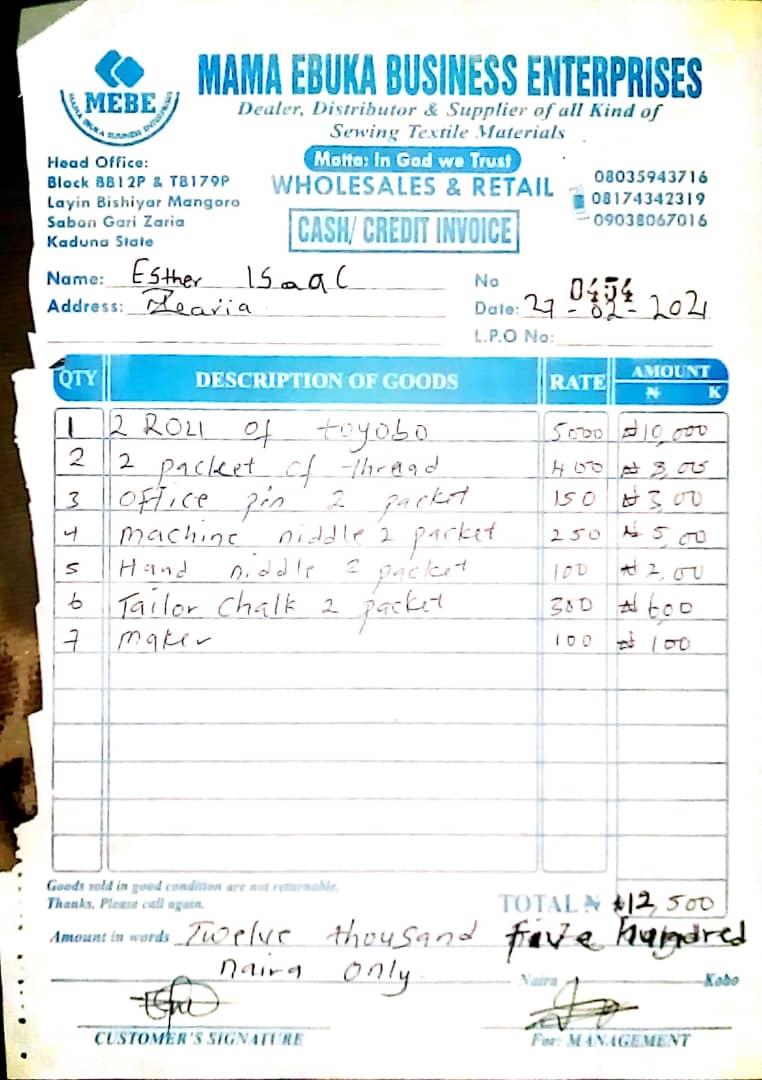 MAMA EBUKA BUSINESS ENTERPRISES
Dealer, Distributor & Supplier of all Kind of
Sewing Textile Materials
MEBE
MAMA EBUKA BUSINESS ENTERPRISES
Motto: In God we Trust
WHOLESALES & RETAIL
CASH/ CREDIT INVOICE
Head Office:
Block BB12P & TB179P
Layin Bishiyar Mangoro
Sabon Gari Zaria
Kaduna State
08035943716
08174342319
09038067016
Name: Esther Isaac
Address: Zearia
No 0454
Date: 27-02-2021
L.P.O No:
QTY DESCRIPTION OF GOODS RATE AMOUNT
₦ K
1 2 Roll of toyobo 5000 ₦10,000
2 2 packet of thread 400 ₦8,00
3 office pin 2 packet 150 ₦3,00
4 machine niddle 2 packet 250 ₦5,00
5 Hand niddle 2 packet 100 ₦2,00
6 Tailor Chalk 2 packet 300 ₦600
7 maker 100 ₦100
Goods sold in good condition are not returnable.
Thanks, Please call again.
TOTAL ₦ ₦12,500
Amount in words Twelve thousand five hundred
naira only
Naira Kobo
CUSTOMER'S SIGNATURE
For: MANAGEMENT